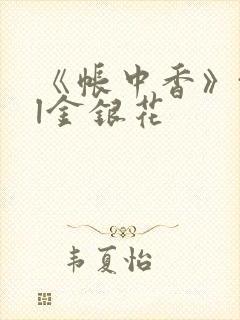 《帐中香》
|金银花
韦夏怡